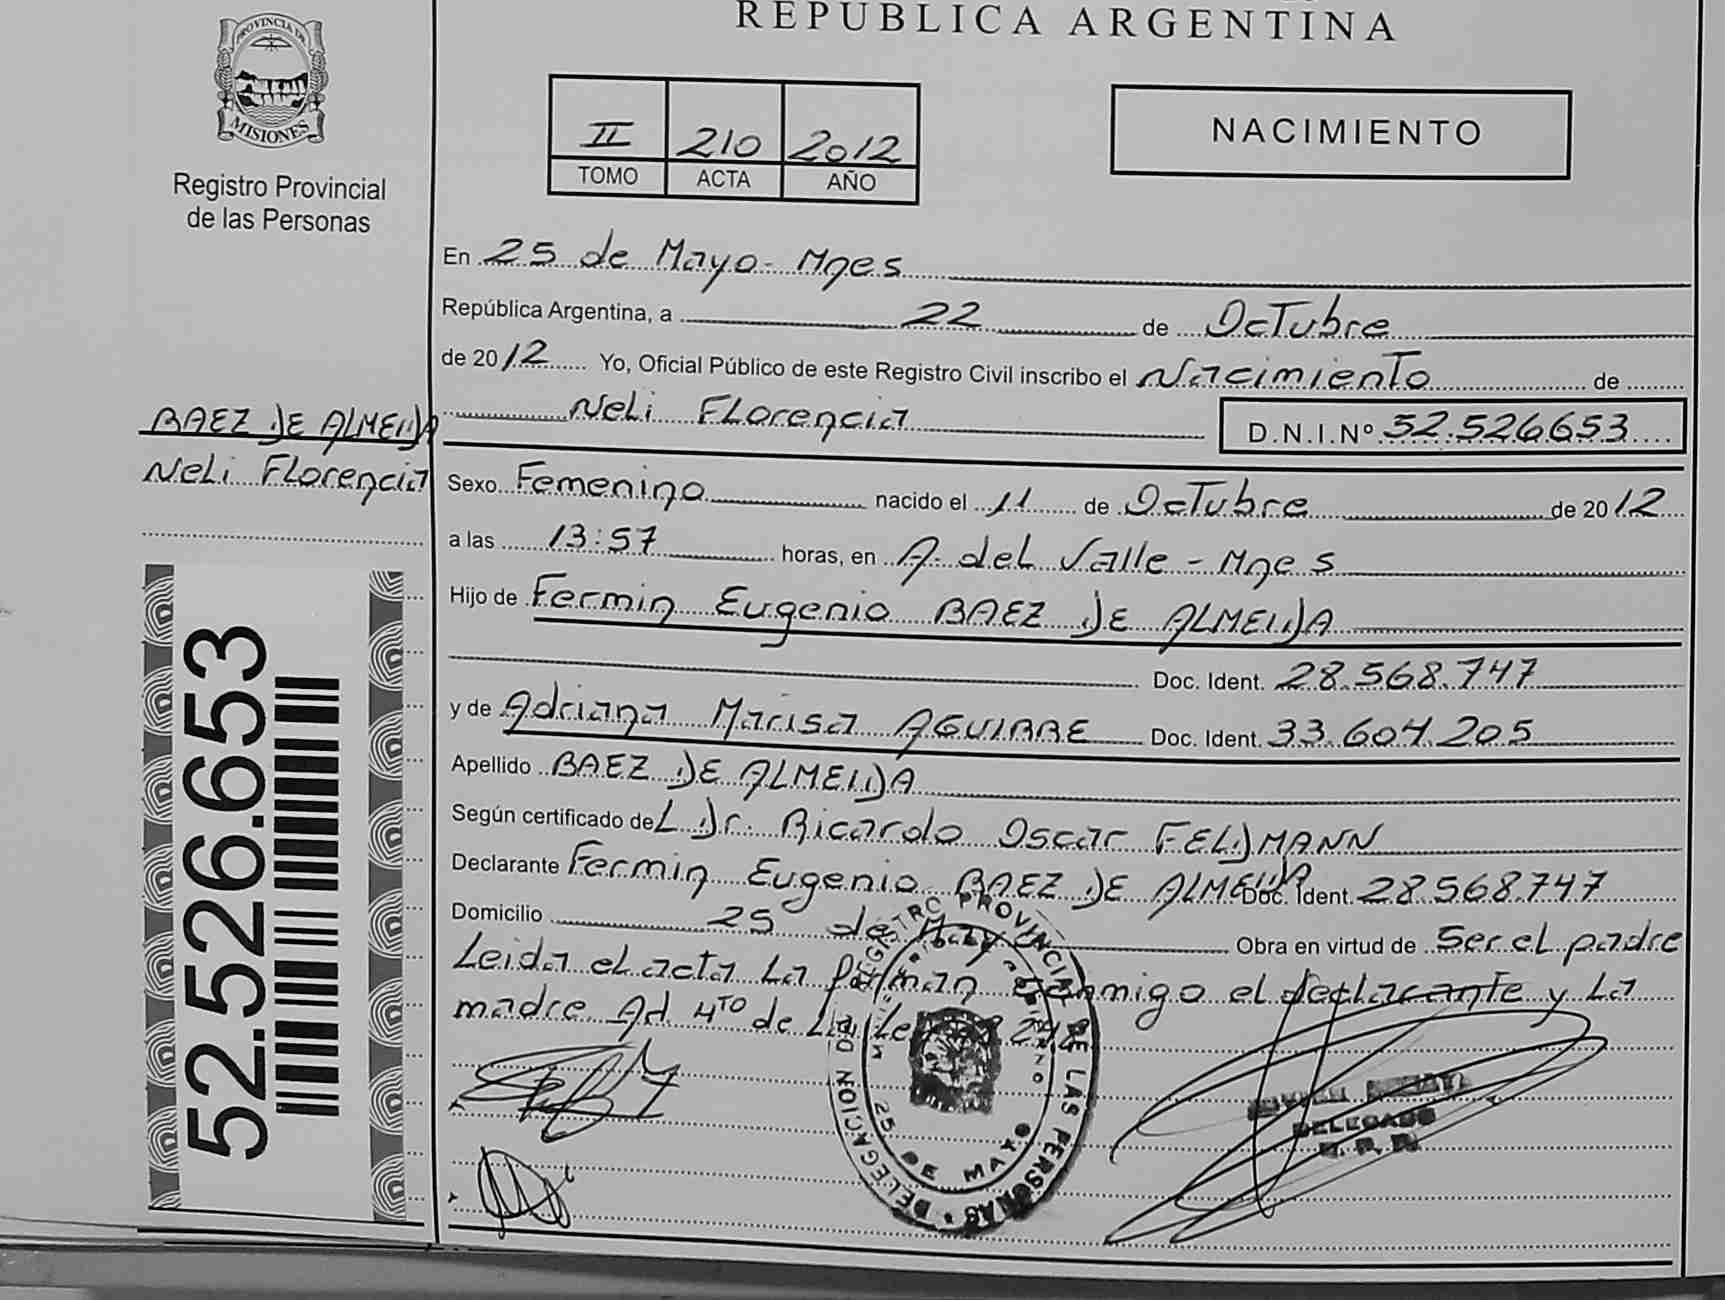 REPUBLICA ARGENTINA
PROVINCIA DE
MISIONES
Registro Provincial
de las Personas
II 210 2012
TOMO ACTA AÑO
NACIMIENTO
En 25 de Mayo - Mnes
República Argentina, a 22 de Octubre
de 2012 Yo, Oficial Público de este Registro Civil inscribo el Nacimiento de
Neli Florencia D.N.I.Nº 52.526653
BAEZ DE ALMEIDA
Neli Florencia
Sexo Femenino nacido el 11 de Octubre de 2012
a las 13:57 horas, en A. del Valle - Mnes
Hijo de Fermin Eugenio BAEZ DE ALMEIDA
Doc. Ident. 28.568.747
y de Adriana Marisa AGUIRRE Doc. Ident. 33.604.205
Apellido BAEZ DE ALMEIDA
Según certificado del Dr. Ricardo Oscar FELDMANN
Declarante Fermin Eugenio BAEZ DE ALMEIDA Doc. Ident. 28.568.747
Domicilio 25 de Mayo Obra en virtud de Ser el padre
Leida el acta La firman conmigo el declarante y La
madre Ad. 4to de La Ley
52.526.653
REGISTRO PROVINCIAL DE LAS PERSONAS
DELEGACION
25 DE MAYO
DELEGADO
R. P. P.